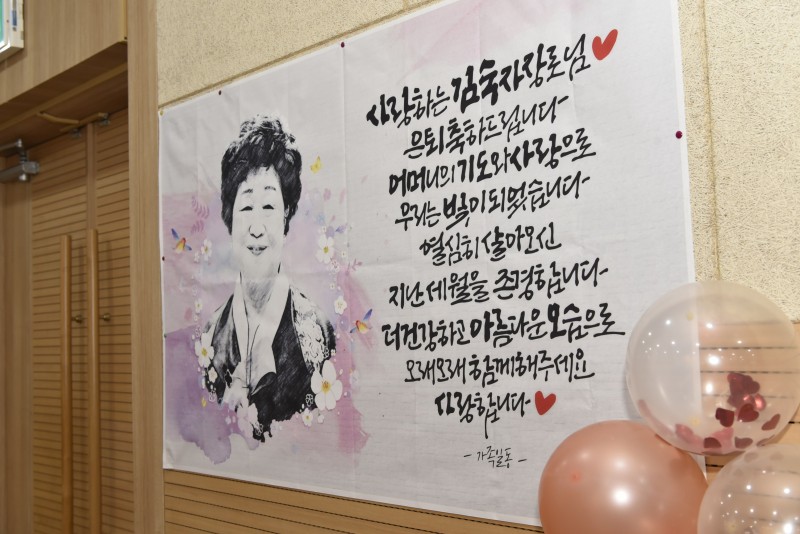 사랑하는 김숙자장로님
은퇴 축하드립니다
어머니의 기도와 사랑으로
우리는 빛이 되었습니다
열심히 살아오신
지난 세월을 존경합니다
더 건강하고 아름다운 모습으로
오래오래 함께해주세요
사랑합니다
- 가족일동 -